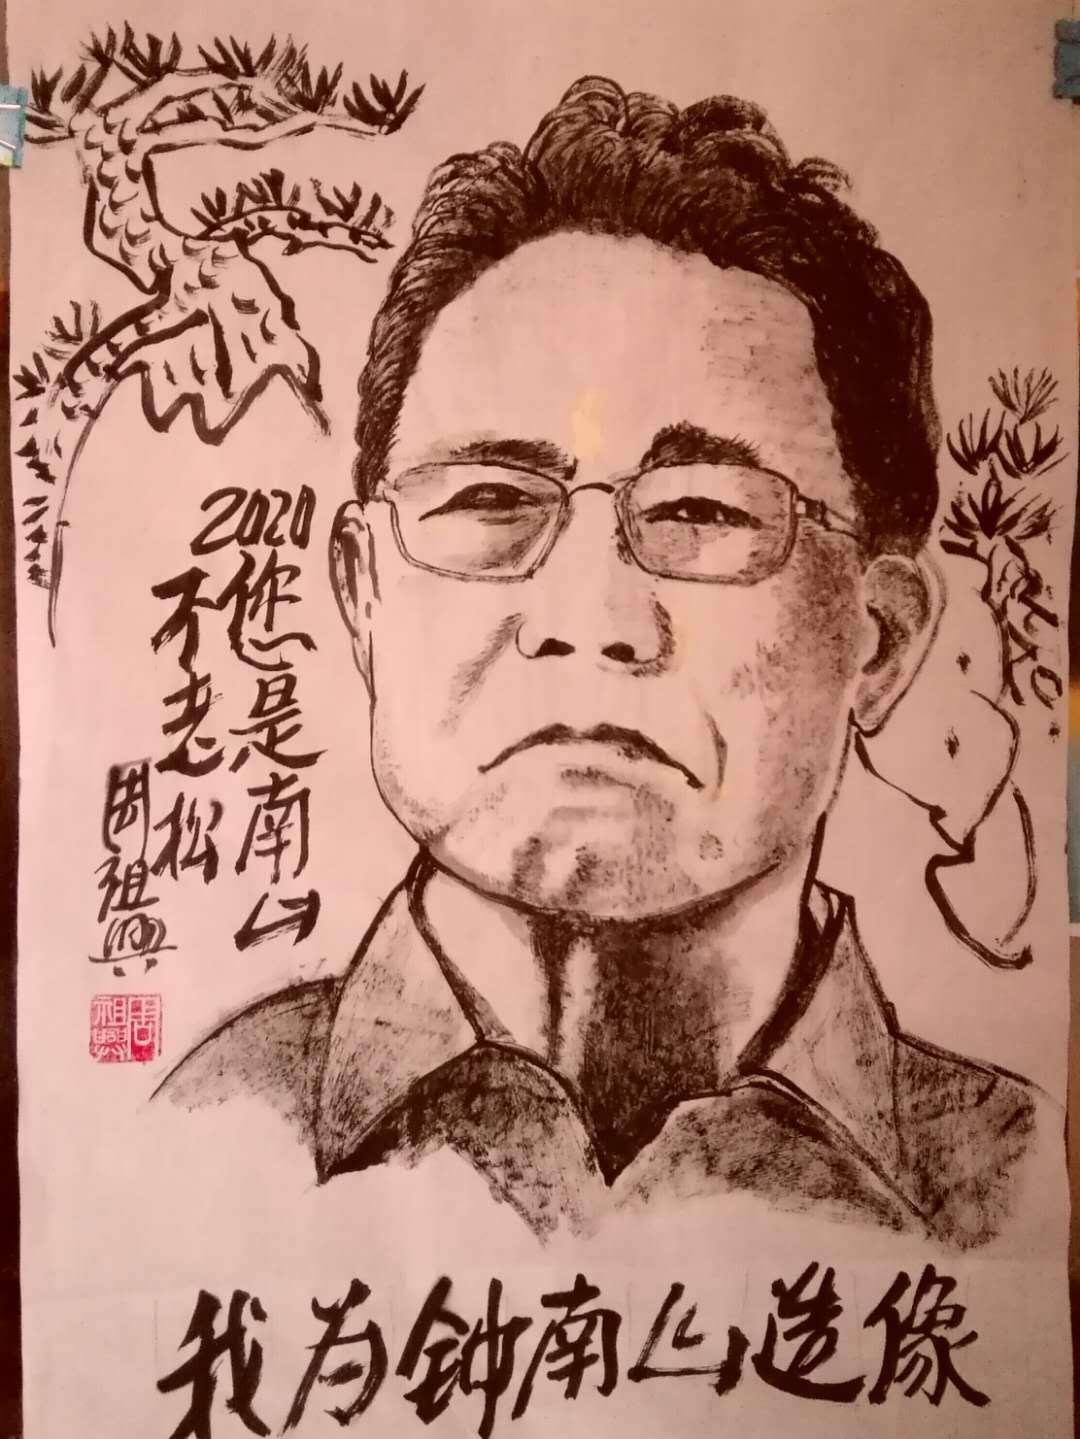 2020
您是南山
不老松
周祖兴
周祖兴
我为钟南山造像